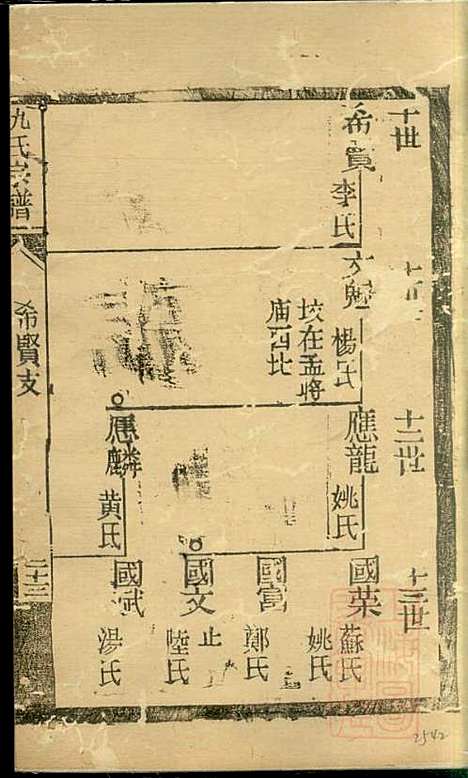 十世
希賢
李氏
文魁
楊氏
坟在孟將
庙西北
十二世
應龍
姚氏
應麟
黃氏
十三世
國荣
蘇氏
姚氏
國富
鄭氏
國文
止
陸氏
國斌
湯氏
氏宗譜
希賢支
二十三
2542